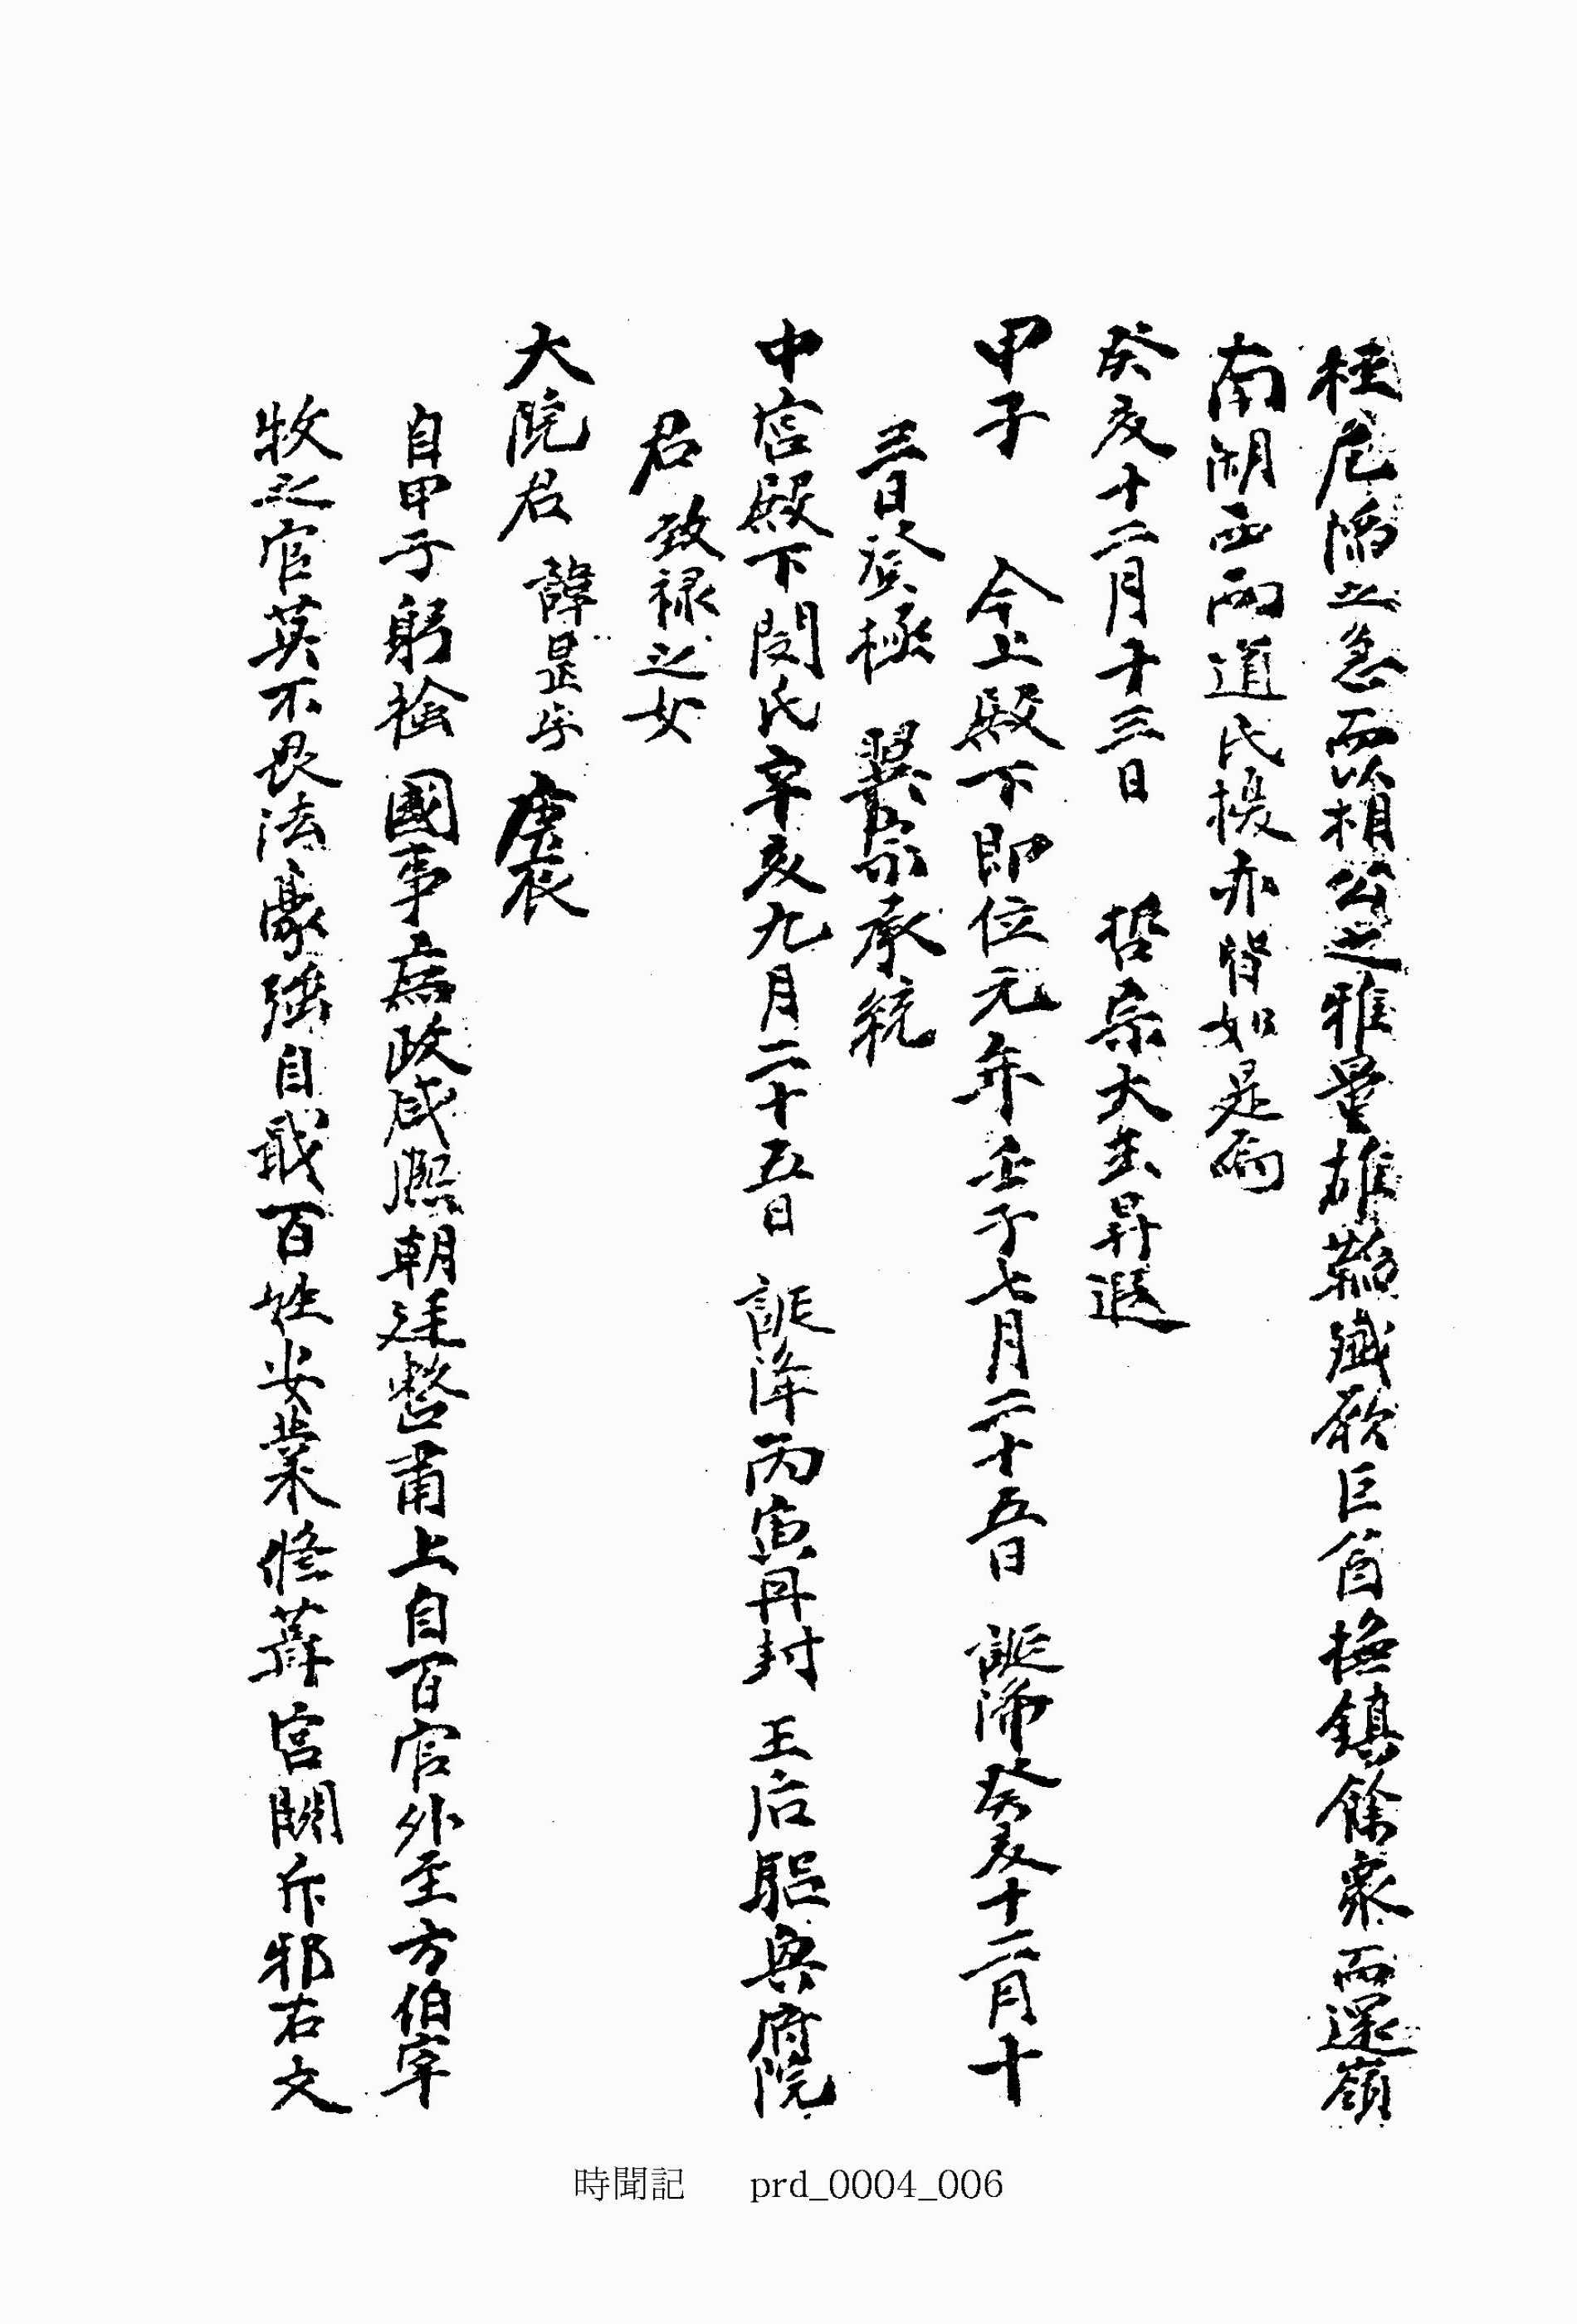 極危陷之急而以相公之雅量雄韜殲厥巨酋撫鎮餘衆而還嶺
南湖西兩道民擾亦皆如是兩
癸亥十二月十三日 哲宗大王昇遐
甲子 今上殿下卽位元年壬子七月二十五日 誕降癸亥十二月十
三日登極 翼宗承統
中宮殿下閔氏辛亥九月二十五日 誕降丙寅冊封 王后驪興府院
君致祿之女
大院君 諱昰字
自甲子躬 國事爲政咸熙朝廷整肅上自百官外至方伯宰
牧之官莫不畏法豪强自戢百姓安業修葺宮闕斥邪右文
時聞記 prd_0004_006